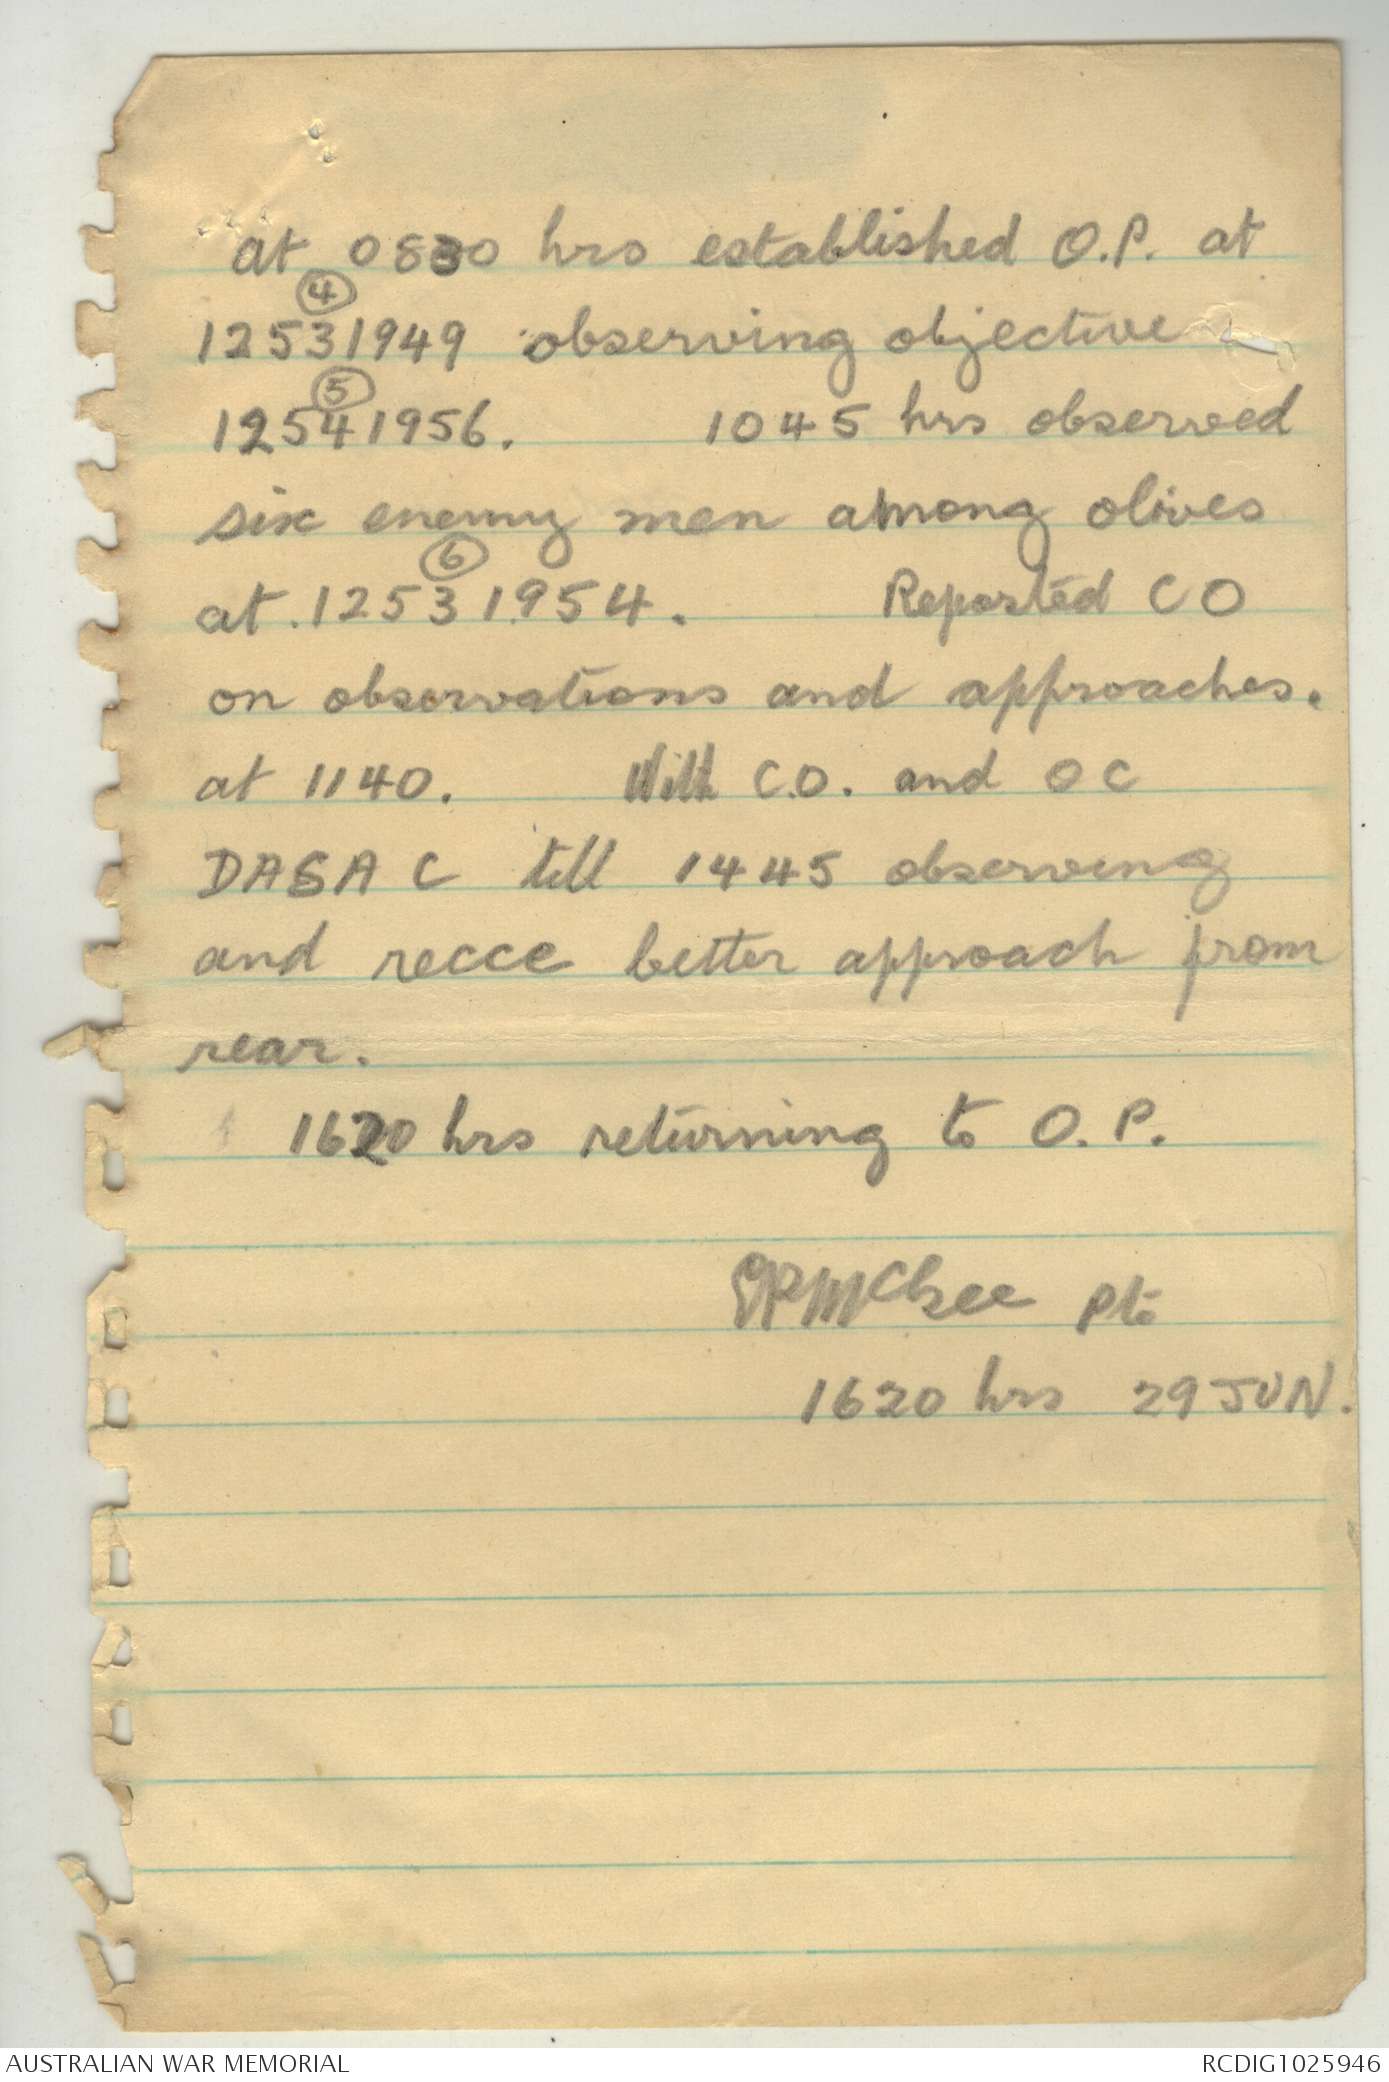 at 0830 hrs established O.P. at
④
12531949 observing objective
⑤
12541956. 1045 hrs observed
six enemy men among olives
⑥
at 12531954. Reported CO
on observations and approaches.
at 1140. With C.O. and OC
DASAC till 1445 observing
and recce better approach from
rear.
1620 hrs returning to O.P.
Pte
1620 hrs 29 JUN.
AUSTRALIAN WAR MEMORIAL
RCDIG1025946